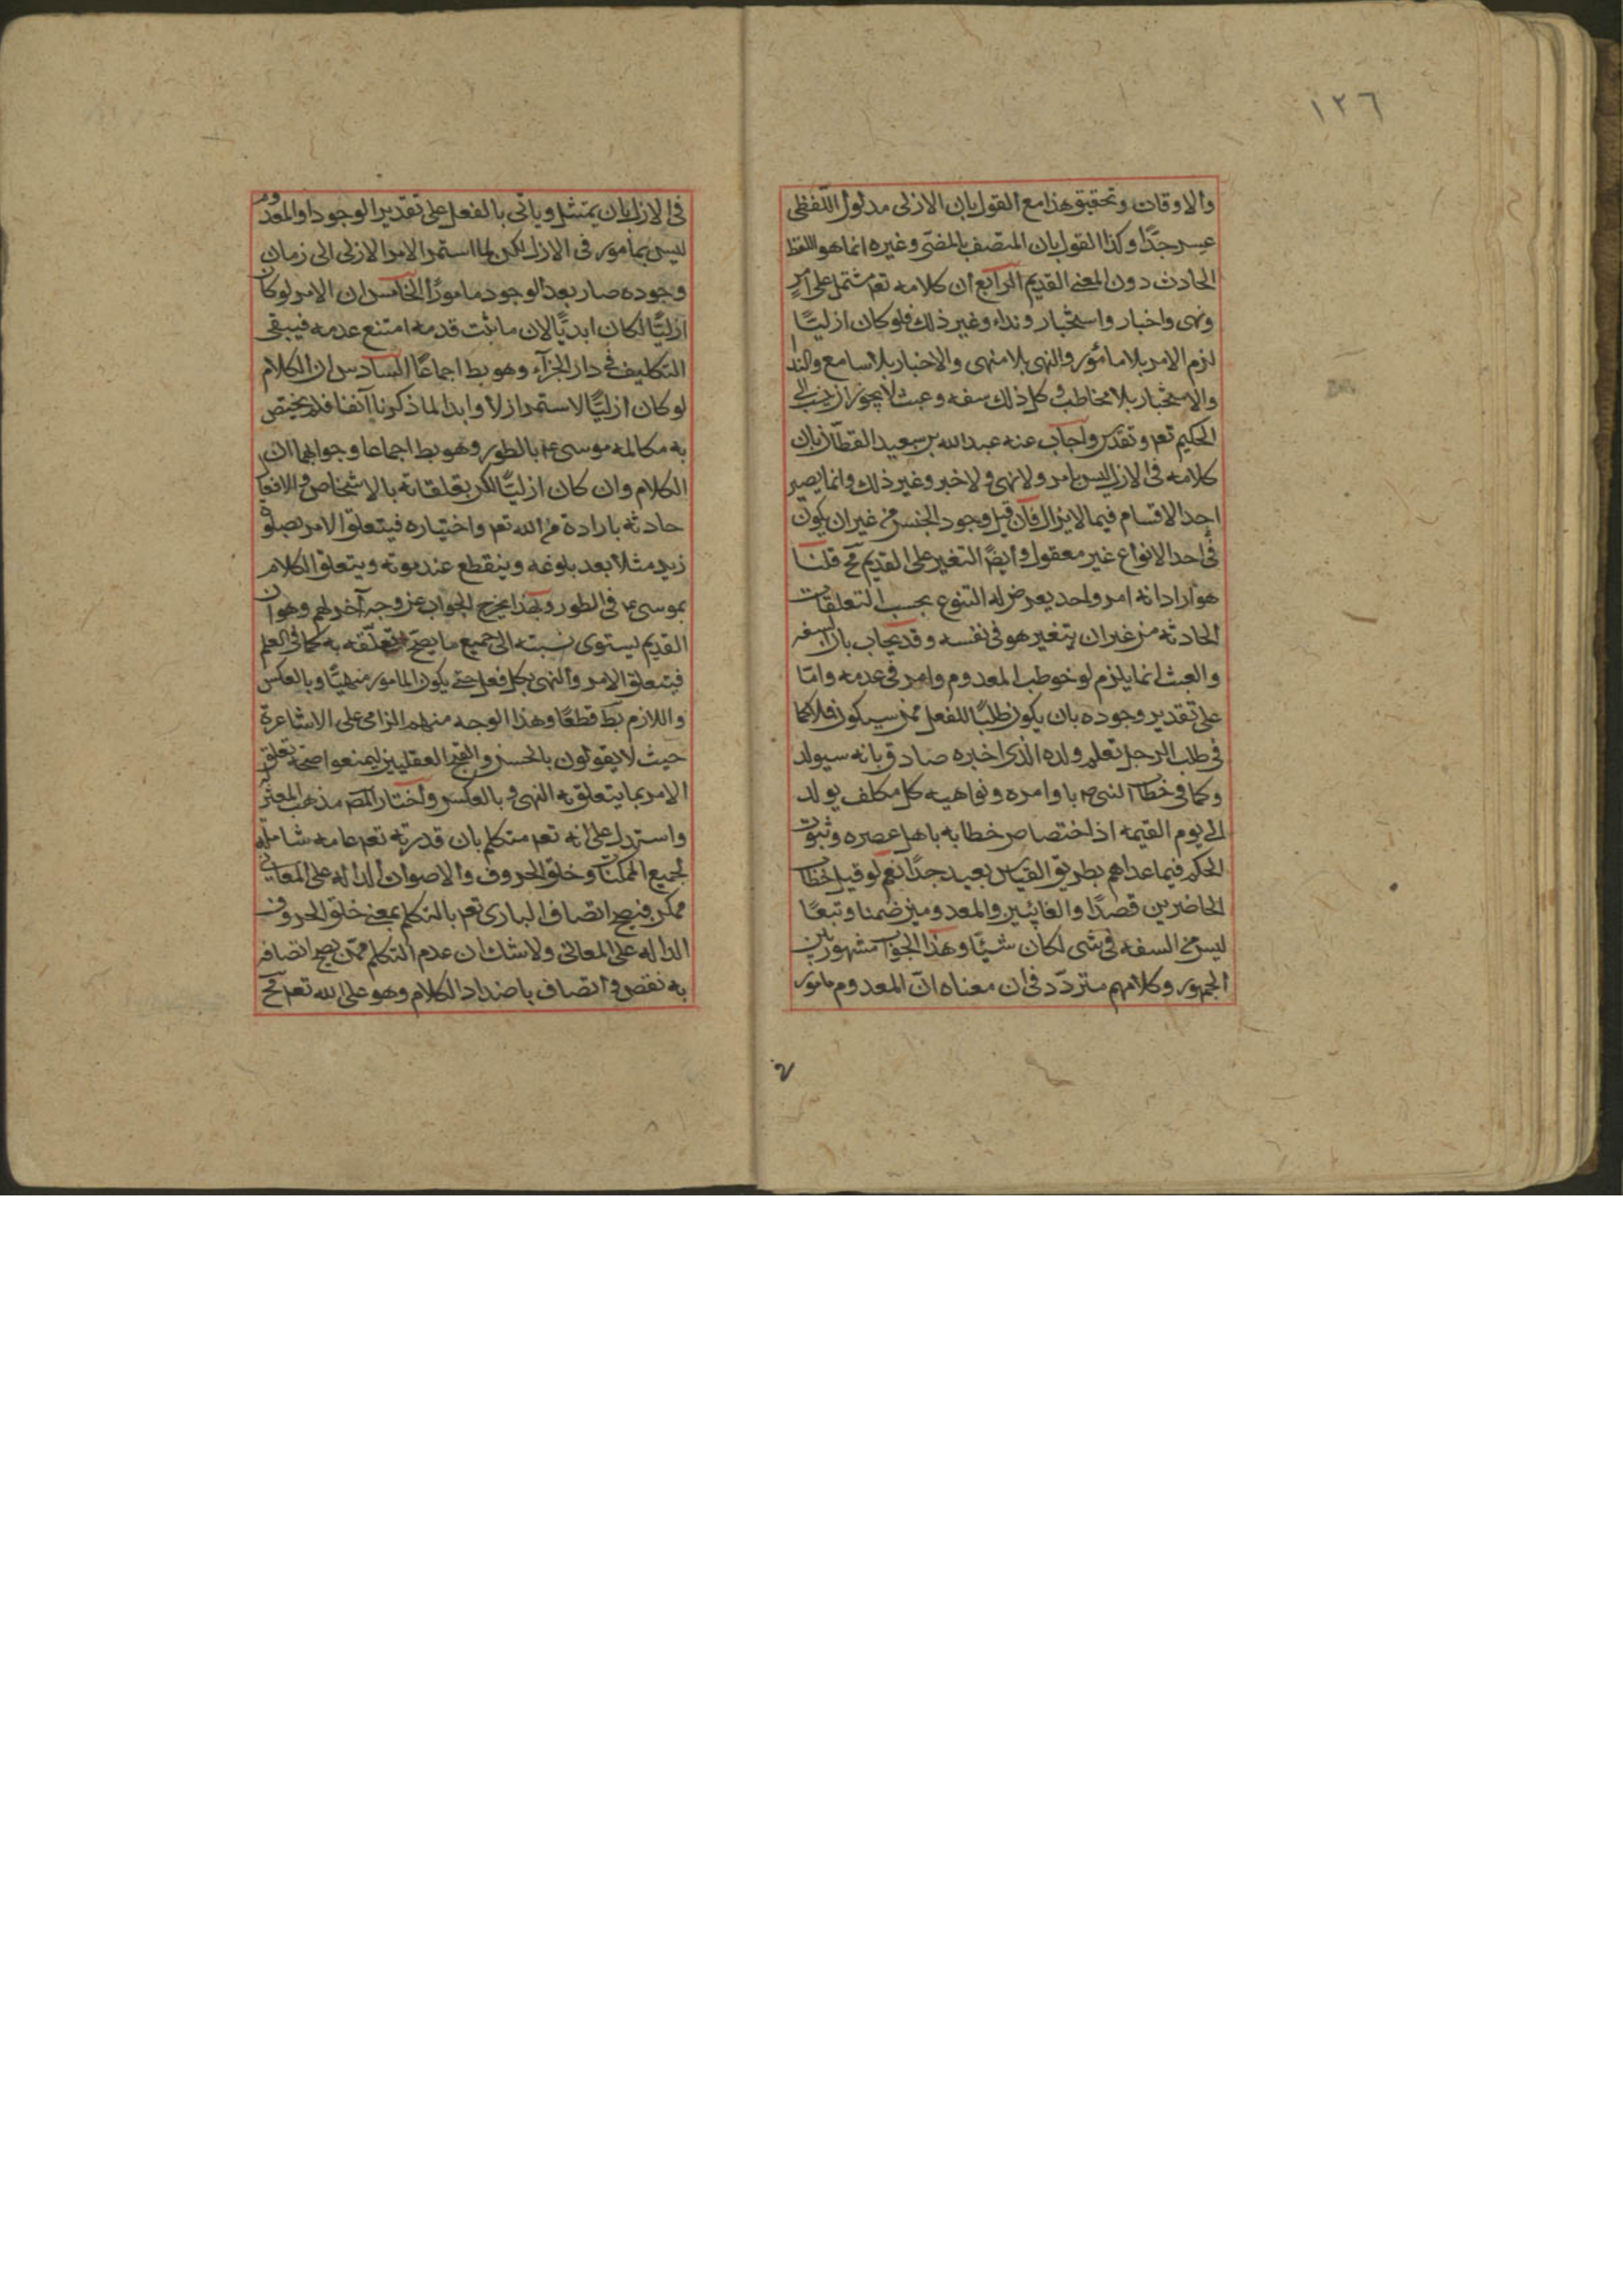 ١٢٦
والاوقات وتحقيق هذا مع القول بان الازلى مدلول اللفظى
عسر جدّا وكذا القول بان المتصف بالمضى وغيره انما هو اللفظ
الحادث دون المعنى القديم الرابع ان كلامه تعم مشتمل على امر
ونهى واخبار واستخبار ونداء وغير ذلك فلو كان ازليّا
لزم الامر بلا مامور والنهى بلا منهى والاخبار بلا سامع والندا
والاستخبار بلا مخاطب وكل ذلك سفه وعبث لا يجوز ان ينسب الى
الحكيم تعم وتقدس واجاب عنه عبد الله بن سعيد القطان بان
كلامه فى الازل ليس بامر ولا نهى ولا خبر وغير ذلك وانما يصير
احد الاقسام فيما لا يزال فان قيل وجود الجنس من غير ان يكون
فى احد الانواع غير معقول وايضً التغير على القديم مح قلنا
هو اراد انه امر واحد يعرض له التنوع بحسب التعلقات
الحادثه من غير ان يتغير هو فى نفسه وقد يجاب بان السفه
والعبث انما يلزم لو خوطب المعدوم وامر فى عدمه وامّا
على تقدير وجوده بان يكون طلبًا للفعل ممن سيكون فلا كما
فى طلب الرجل تعلم ولده الذى اخبره صادق بانه سيولد
وكما فى خطاب النبى م باوامره ونواهيه كل مكلف يولد
الى يوم القيمه اذ اختصاص خطابه باهل عصره وثبوت
الحكم فيما عداهم بطريق القياس بعيد جدّا نعم لو قيل خطاب
الحاضرين قصدًا والغائبين والمعدومين ضمنا وتبعًا
ليس من السفه فى شى لكان شيئًا وهذا الجواب مشهور بين
الجمهور وكلامهم متردّد فى ان معناه انّ المعدوم مامور
فى الازل بان يمتثل وياتى بالفعل على تقدير الوجود او المعدوم
ليس بمامور فى الازل لكن لما استمر الامر الازلى الى زمان
وجوده صار بعد الوجود مامورًا الخامس ان الامر لو كان
ازليّا لكان ابديّا لان ما ثبت قدمه امتنع عدمه فيبقى
التكليف فى دار الجزآء وهو بط اجماعًا السادس ان الكلام
لو كان ازليّا لاستمر ازلا وابدا لما ذكرنا آنفا فلا يختص
به مكالمه موسى ع بالطور وهو بط اجماعا وجوابهما ان
الكلام وان كان ازليّا لكن تعلقاته بالاشخاص والافعال
حادثه بارادة من الله تعم واختياره فيتعلق الامر بصلوة
زيد مثلا بعد بلوغه وينقطع عند موته ويتعلق الكلام
بموسى ع فى الطور وبهذا يخرج الجواب عن وجه آخر لهم وهو ان
القديم يستوى نسبته الى جميع ما يصح تعلّقه به كما فى العلم
فيتعلق الامر والنهى بكل فعل حتى يكون المامور منهيّا وبالعكس
واللازم بط قطعًا وهذا الوجه منهم الزامى على الاشاعرة
حيث لا يقولون بالحسن والقبح العقليين ليمنعوا صحة تعلق
الامر بما يتعلق به النهى وبالعكس واختار المص مذهب المعتزله
واستدل على انه تعم متكلم بان قدرته تعم عامه شامله
لجميع الممكنات وخلق الحروف والاصوات الداله على المعانى
ممكن فيصح اتصاف البارى تعم بالتكلم بمعنى خلق الحروف
الداله على المعانى ولا شك ان عدم التكلم ممن يصح اتصافه
به نقص واتصاف باضداد الكلام وهو على الله تعم مح